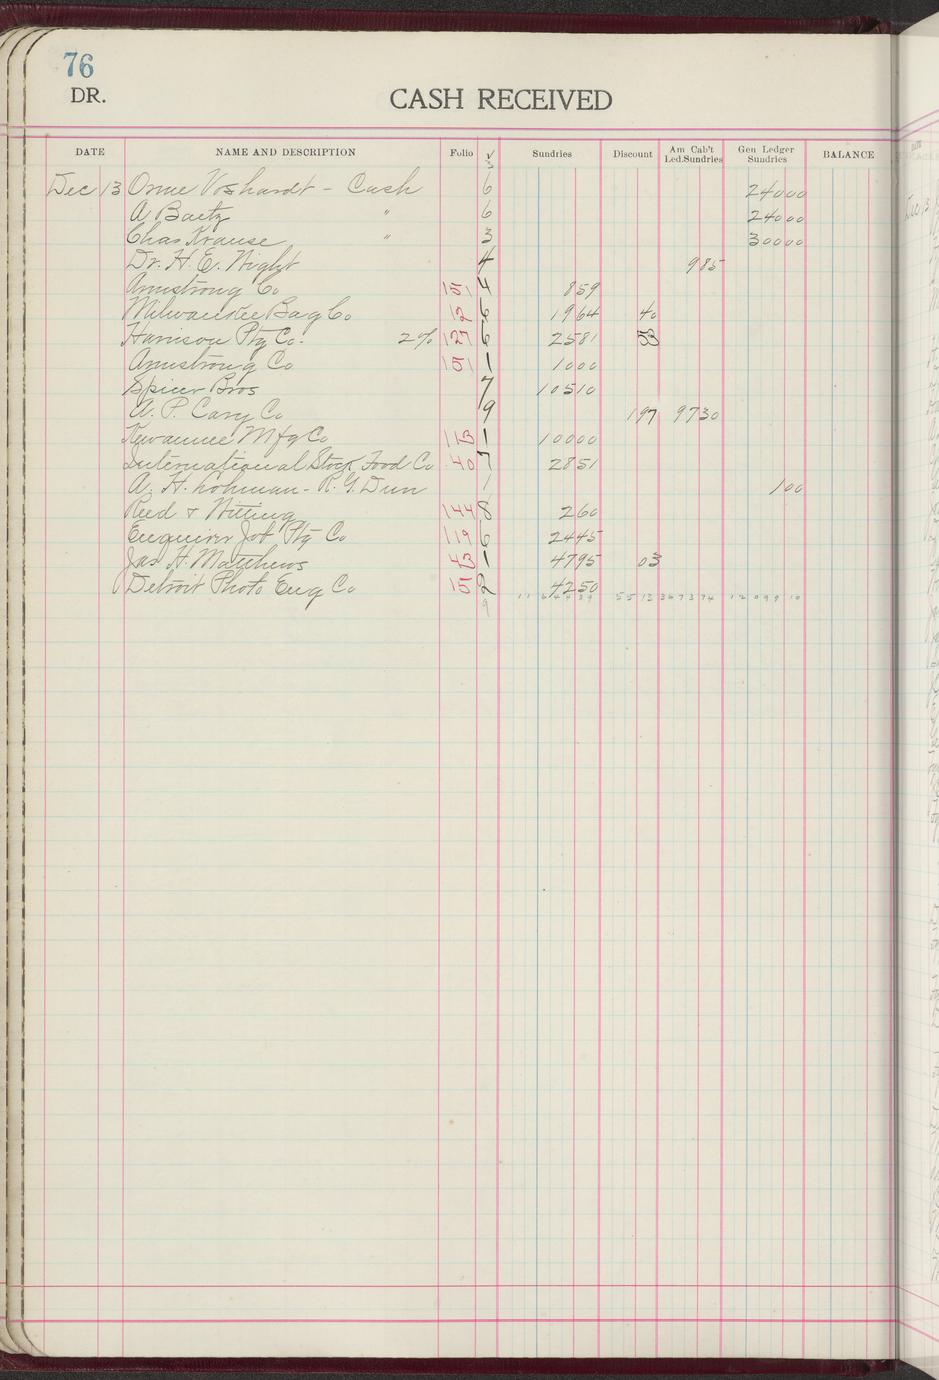 76
DR.
CASH RECEIVED
DATE NAME AND DESCRIPTION Folio √ Sundries Discount Am Cab't Led. Sundries Gen Ledger Sundries BALANCE
Dec 13 Orme Voshardt - Cash 6 24000
A Baetz " 6 24000
Chas Krause " 3 30000
Dr. H. E. Night 4 985
Armstrong Co 151 4 859
Milwaukee Bag Co 12 6 1964 40
Harrison Ptg Co. 2% 127 6 2581 53
Armstrong Co 151 1 1000
Spicer Bros 7 10510
A. P. Cary Co 9 197 9730
Kewaunee Mfg Co 113 1 10000
International Stock Food Co 40 7 2851
A. H. Lohman - R. G. Dun 1 100
Reed & Witting 144 8 260
Enquirer Job Ptg Co 119 6 2445
Jas H. Matthews 43 1 4795 03
Detroit Photo Eng Co 151 2 4250
9